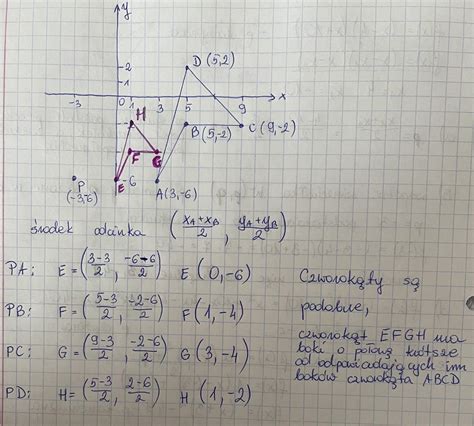 y
D (5,2)
2
1
-3
0
1
3
5
9
x
H
B (5,-2)
C (9,-2)
F
G
E
-6
A (3,-6)
P
(-3,-6)
środek odcinka (xA+xB/2 , yA+yB/2)
PA: E = (3-3/2 , -6-6/2) E (0,-6)
PB: F = (5-3/2 , -2-6/2) F (1,-4)
PC: G = (9-3/2 , -2-6/2) G (3,-4)
PD: H = (5-3/2 , 2-6/2) H (1,-2)
Czworokąty są
podobne,
czworokąt EFGH ma
boki o połowę krótsze
od odpowiadających im
boków czworokąta ABCD